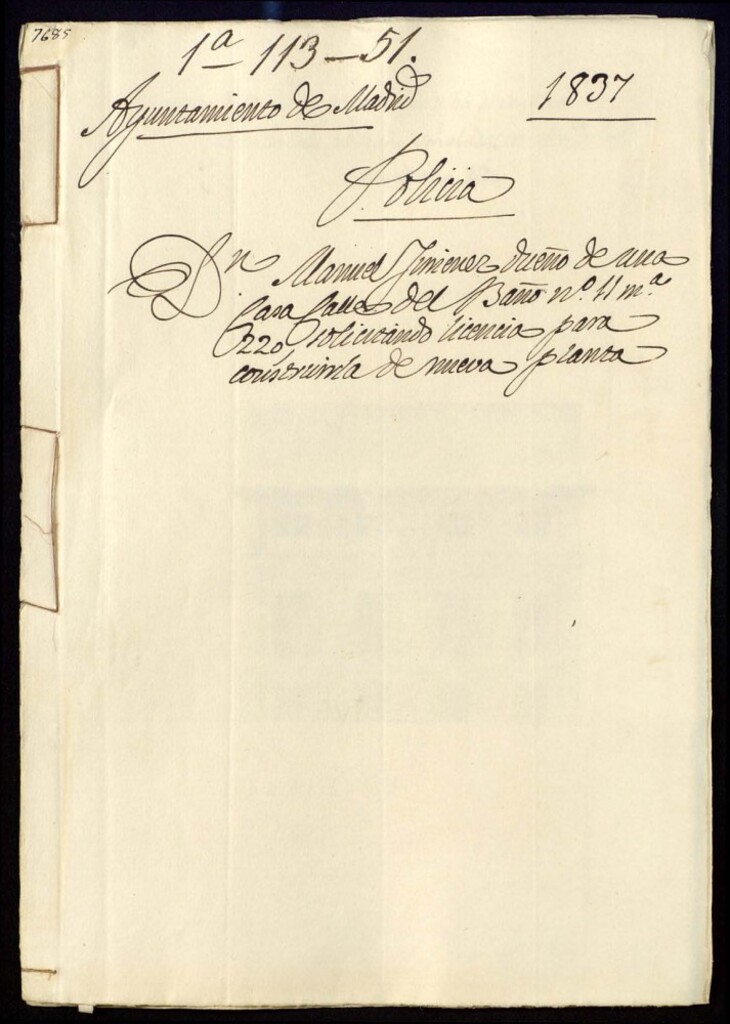 7685
1ª 113-51.
Ayuntamiento de Madrid
1837
Policia
Dn Manuel Jimenez dueño de una
Casa Calle del Baño nº. 11 mª.
220 solicitando licencia para
construirla de nueva planta